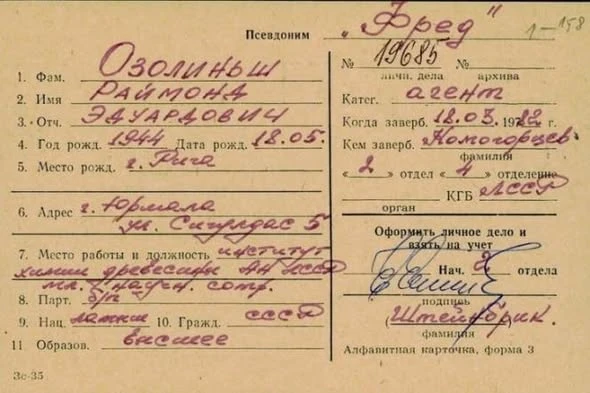 Псевдоним „Фред"
1-158
№ 19685 №
личн. дела архива
1. Фам. Озолиньш
2. Имя Раймонд
3. Отч. Эдуардович
4. Год рожд. 1944 Дата рожд. 18.05.
5. Место рожд. г. Рига
6. Адрес г. Юрмала
ул. Сигулдас 5
7. Место работы и должность институт
химии древесины АН ЛССР
мл. научн. сотр.
8. Парт. б/п
9. Нац. латыш 10. Гражд. СССР
11 Образов. высшее
Зс-35
Катег. агент
Когда заверб. 18.03. 1982 г.
Кем заверб. Комогорцев
фамилия
« 2 » отдел « 4 » отделение
КГБ ЛССР
орган
Оформить личное дело и
взять на учет
Нач. 2 отдела
подпись
(Штейнбрик.)
фамилия
Алфавитная карточка, форма 3